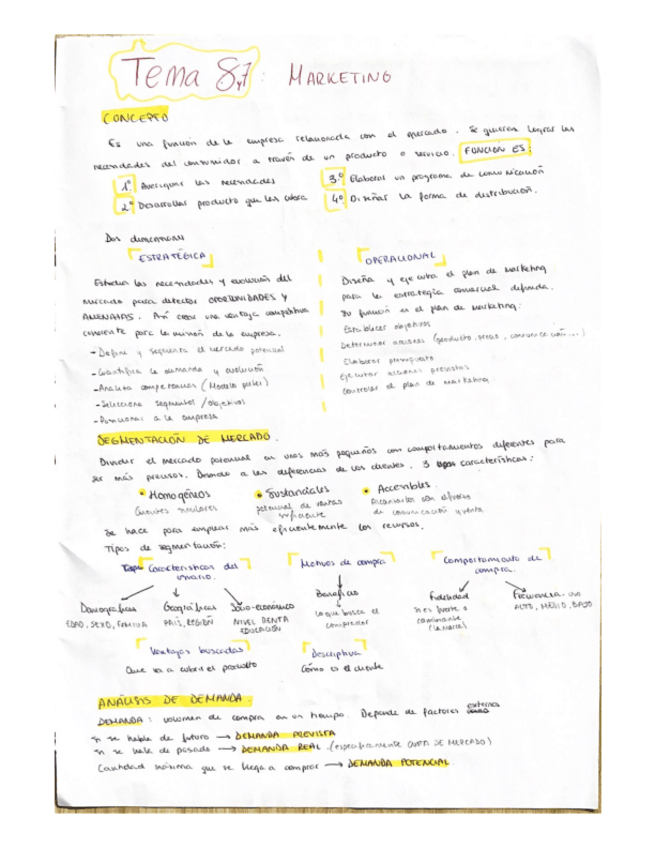 Tema 8,7: MARKETING
CONCEPTO
Es una función de la empresa relacionada con el mercado. Se quieren lograr las
necesidades del consumidor a través de un producto o servicio. FUNCIÓN ES:
1º Averiguar las necesidades
2º Desarrollar producto que las cubra
3º Elaborar un programa de comunicación
4º Diseñar la forma de distribución.
Dos dimensiones
ESTRATÉGICA
Estudia las necesidades y evolución del
mercado para detectar OPORTUNIDADES Y
AMENAZAS. Así crear una ventaja competitiva
coherente para la misión de la empresa.
- Define y segmenta el mercado potencial
- Cuantifica la demanda y evolución
- Analiza competencias (Modelo porter)
- Selecciona segmentos / objetivos
- Posicionar a la empresa
OPERACIONAL
Diseña y ejecuta el plan de marketing
para la estrategia comercial definida.
Su función es el plan de marketing:
Establecer objetivos
Determinar acciones (producto, precio, comunicación...)
Elaborar presupuesto
Ejecutar acciones previstas
Controlar el plan de marketing
SEGMENTACIÓN DE MERCADO.
Dividir el mercado potencial en unos más pequeños con comportamientos diferentes para
ser más precisos. Basado a las diferencias de los clientes. 3 características:
• Homogéneos
Clientes similares
• Sustanciales
potencial de ventas
suficiente
• Accesibles.
Alcanzarlos con esfuerzo
de comunicación y venta
Se hace para emplear más eficientemente los recursos.
Tipos de segmentación:
Características del
usuario.
Motivos de compra
Comportamiento de
compra.
Demográficas
EDAD, SEXO, FAMILIA
Geográficas
PAIS, REGIÓN
Socio-económico
NIVEL RENTA
EDUCACIÓN
Beneficio
Lo que busca el
comprador
Fidelidad
Si es fuerte o
cambiante
(la marca)
Frecuencia uso
ALTO, MEDIO, BAJO
Ventajas buscadas
Que va a cubrir el producto
Descriptiva
Cómo es el cliente
ANÁLISIS DE DEMANDA.
DEMANDA: volumen de compra en un tiempo. Depende de factores externos
Si se habla de futuro → DEMANDA PREVISTA
Si se habla de pasado → DEMANDA REAL (específicamente CUOTA DE MERCADO)
Cantidad máxima que se llega a comprar → DEMANDA POTENCIAL.